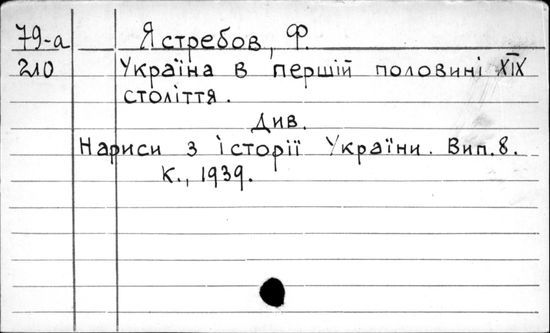 79-а Ястребов, Ф.
210 Україна в першій половині XIX
століття.
Див.
Нариси з історії України. Вип. 8.
К., 1939.